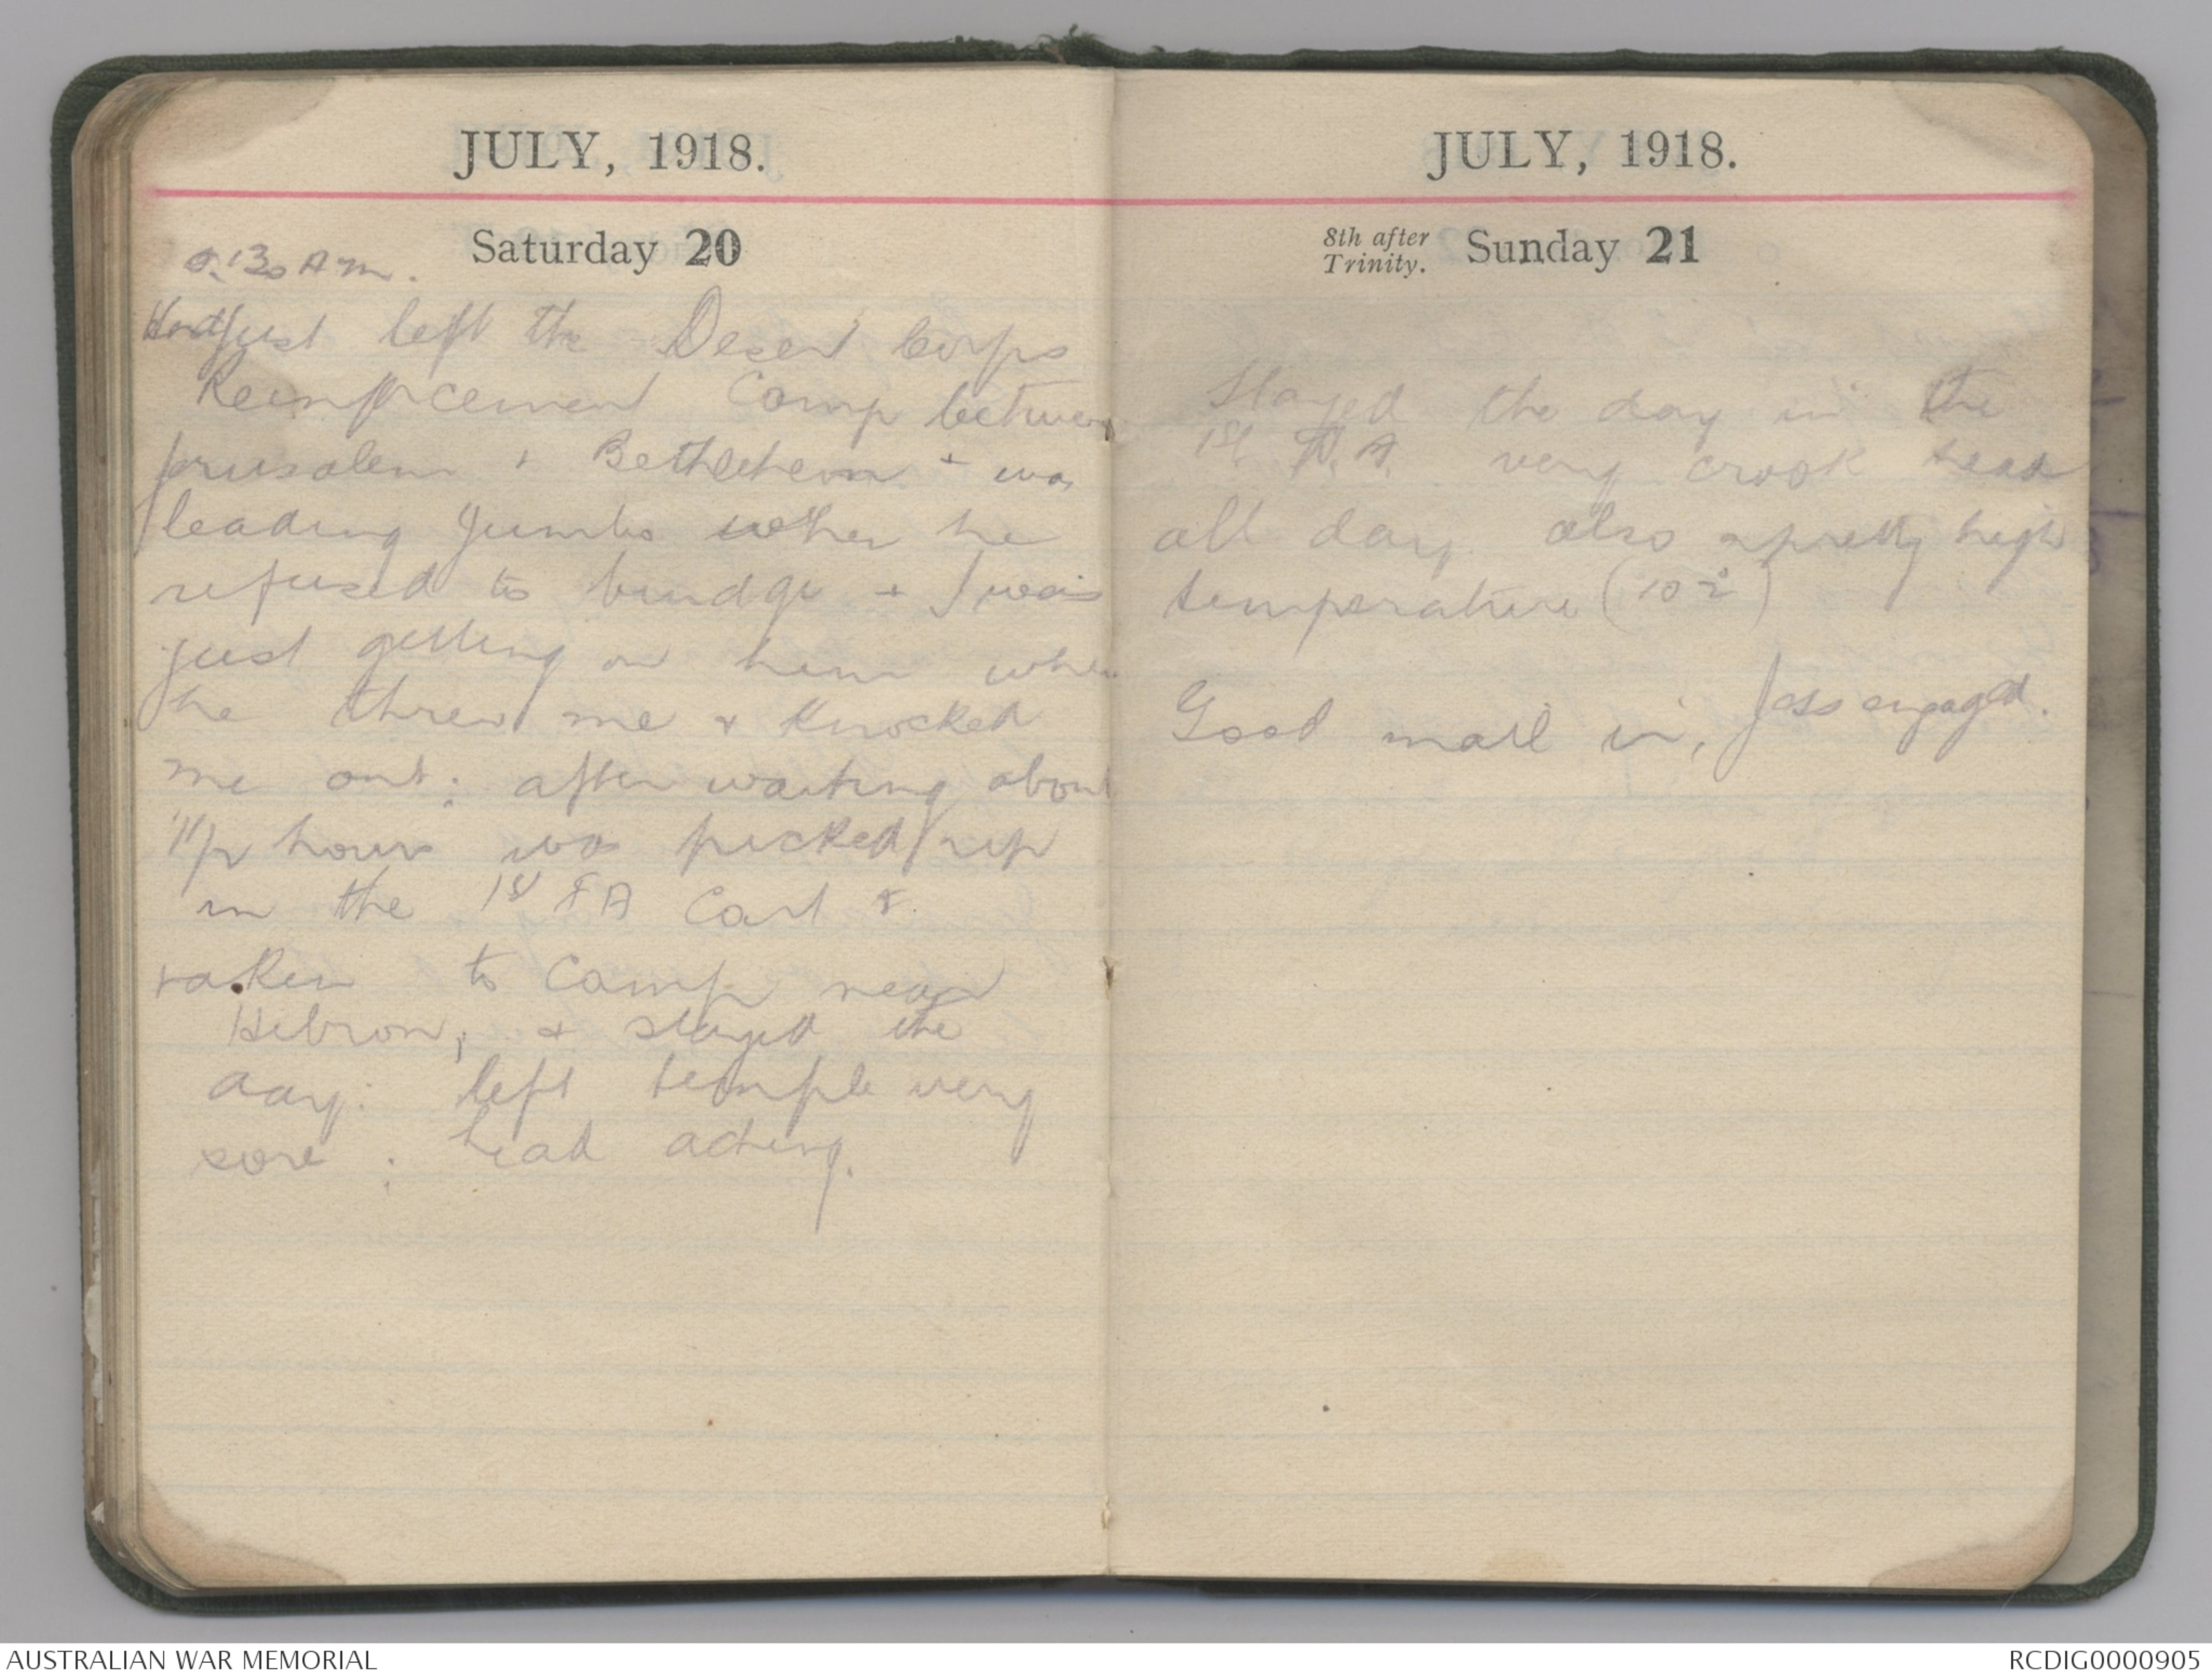 JULY, 1918.
Saturday 20
30 A m.
Had just left the Desert Corps
Reinforcement Camp between
Jerusalem + Bethlehem + was
leading Jumbo when he
refused to budge + I was
just getting on him when
he threw me & knocked
me out; after waiting about
hours was picked up
in the 1st FA Cart &
taken to Camp near
Hebron, & stayed the
day: left temple very
sore: head aching.
JULY, 1918.
8th after
Trinity. Sunday 21
Stayed the day in the
1st F.A. very crook head
all day also a pretty high
temperature (102°)
Good mail in, Jess engaged.
AUSTRALIAN WAR MEMORIAL
RCDIG0000905